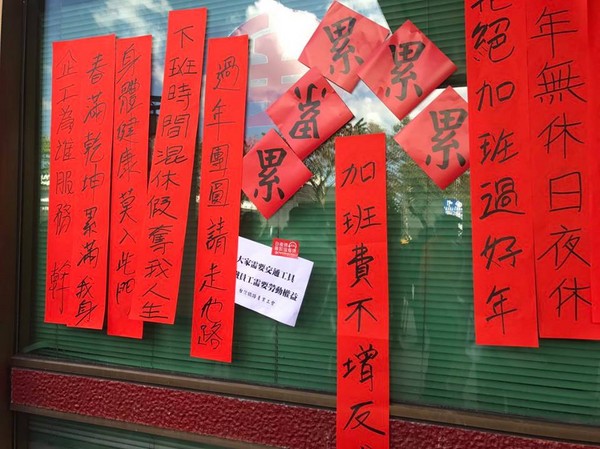 年無休日夜休
絕加班過好年
累
累
累
累
累
加班費不增反
過年團圓請走路
下班時間混休假奪我人生
身體健康莫入此門
春滿乾坤累滿我身
工為誰服務 幹
大家需要交通工具
員工需要勞動權益